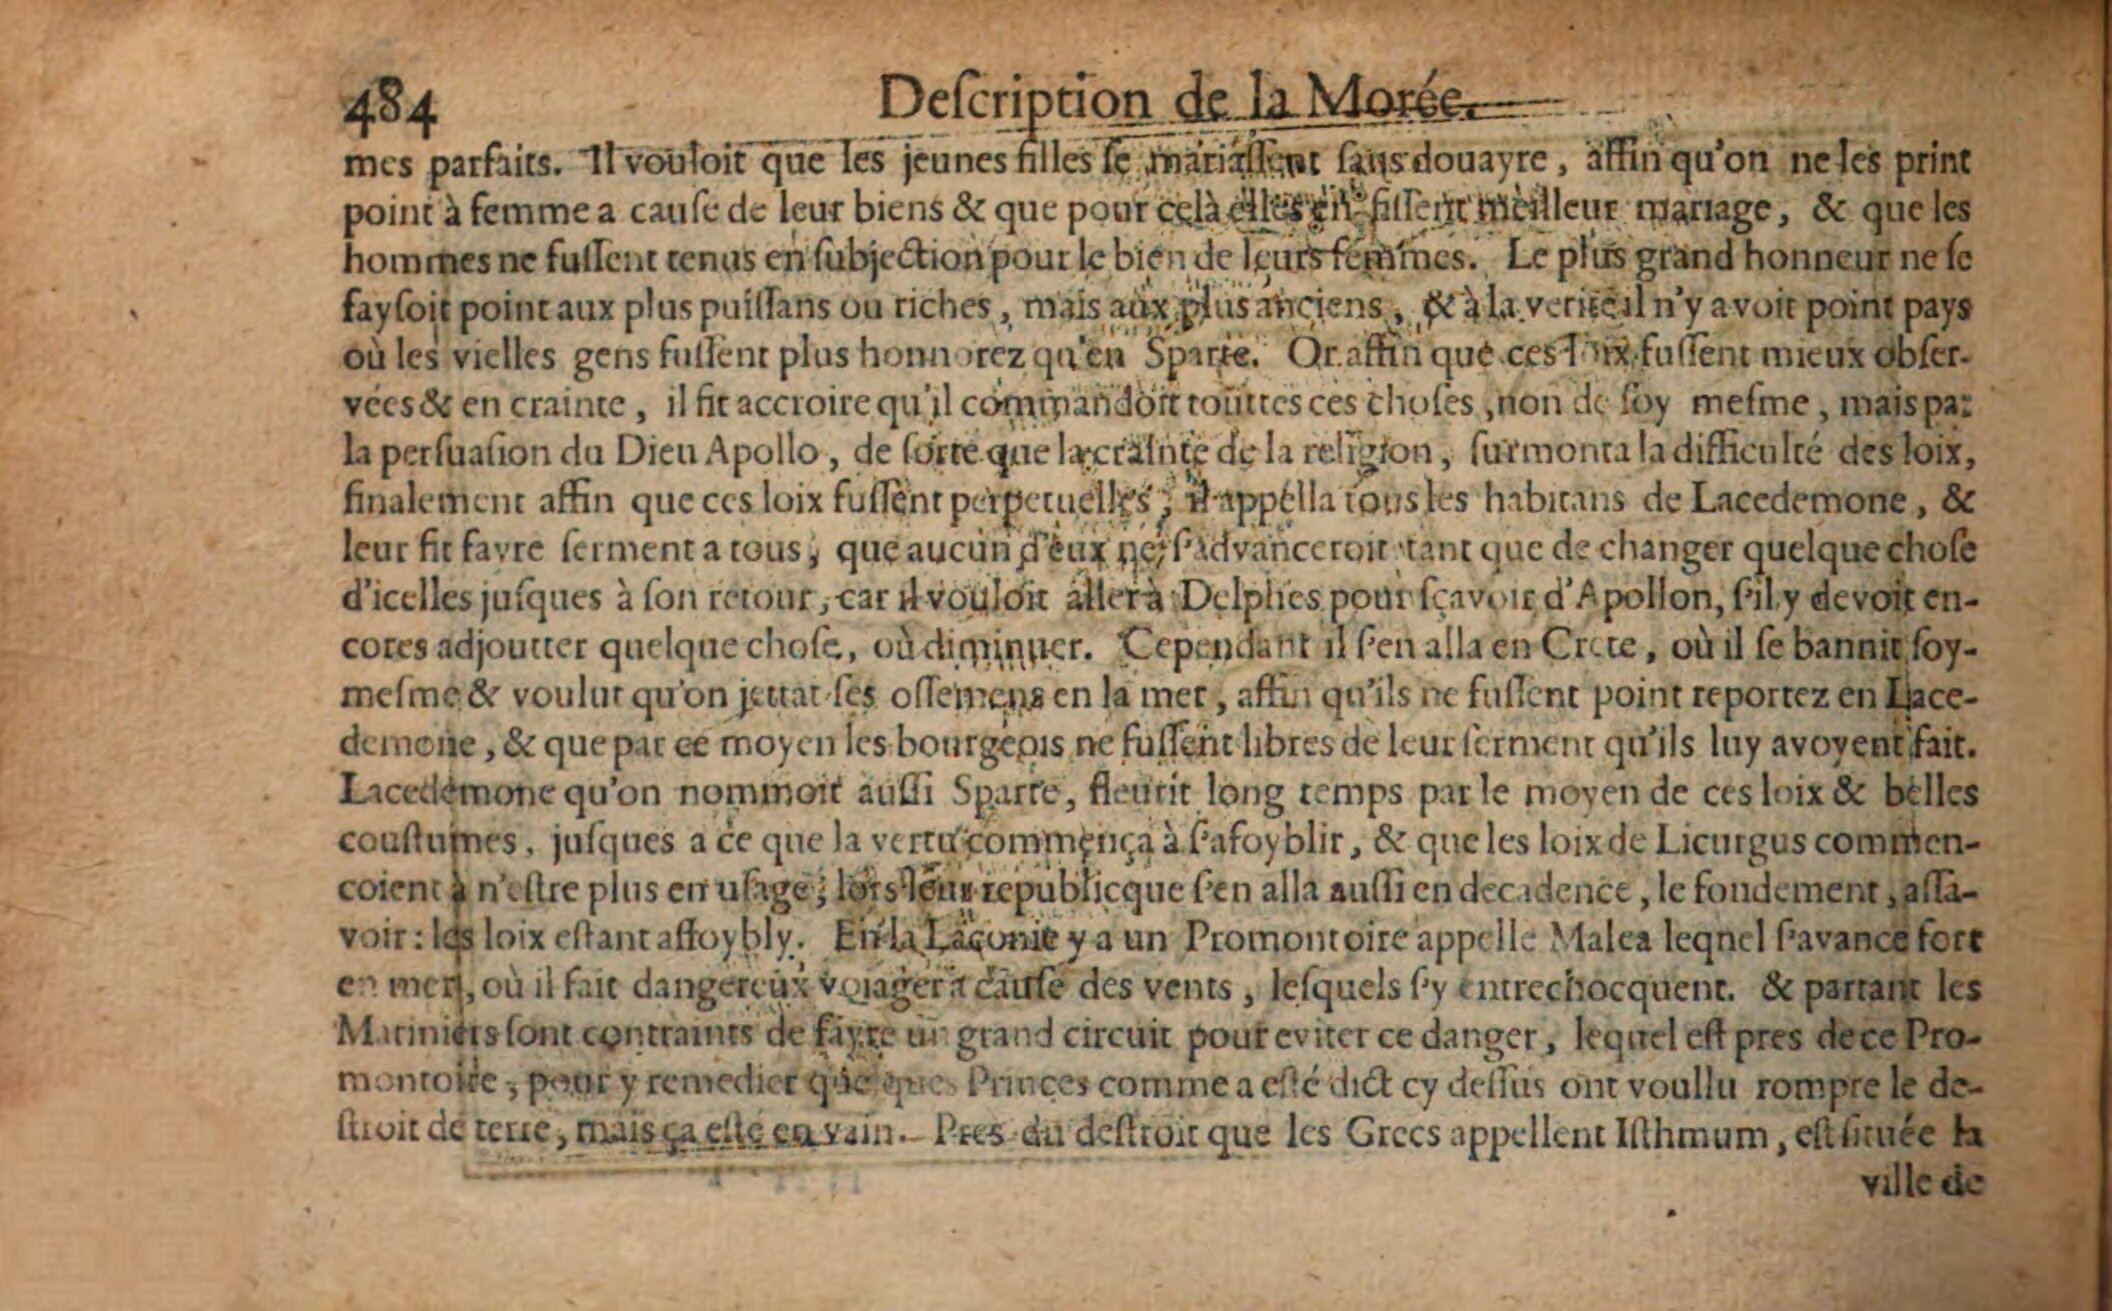 484 Deſcription de la Morée.
mes parfaits. Il vouloit que les jeunes filles ſe mariaſſent ſans douayre, affin qu'on ne les print
point à femme a cauſe de leur biens & que pour celà elles en fiſſent meilleur mariage, & que les
hommes ne fuſſent tenus en ſubjection pour le bien de leurs femmes. Le plus grand honneur ne ſe
fayſoit point aux plus puiſſans ou riches, mais aux plus anciens, & à la verité il n'y avoit point pays
où les vielles gens fuſſent plus honnorez qu'en Sparte. Or affin que ces loix fuſſent mieux obſer-
vées & en crainte, il fit accroire qu'il commandoit touttes ces choſes, non de ſoy meſme, mais par
la perſuaſion du Dieu Apollo, de ſorte que la crainte de la religion, ſurmonta la difficulté des loix,
finalement affin que ces loix fuſſent perpetuelles, il appella tous les habitans de Lacedemone, &
leur fit fayre ſerment a tous, que aucun d'eux ne ſ'advanceroit tant que de changer quelque choſe
d'icelles juſques à ſon retour, car il vouloit aller à Delphes pour ſçavoir d'Apollon, ſ'il y devoit en-
cores adjoutter quelque choſe, où diminuer. Cependant il ſ'en alla en Crete, où il ſe bannit ſoy-
meſme & voulut qu'on jettat ſes oſſemens en la mer, affin qu'ils ne fuſſent point reportez en Lace-
demone, & que par ce moyen les bourgeois ne fuſſent libres de leur ſerment qu'ils luy avoyent fait.
Lacedemone qu'on nommoit auſſi Sparte, fleurit long temps par le moyen de ces loix & belles
couſtumes, juſques a ce que la vertu commença à ſ'afoyblir, & que les loix de Licurgus commen-
coient à n'eſtre plus en uſage; lors leur republicque ſ'en alla auſſi en decadence, le fondement, aſſa-
voir: les loix eſtant affoybly. En la Laconie y a un Promontoire appelle Malea leqnel ſ'avance fort
en mer, où il fait dangereux voiager à cauſe des vents, leſquels ſ'y entrechocquent. & partant les
Mariniers ſont contraints de fayre un grand circuit pour eviter ce danger, lequel eſt pres de ce Pro-
montoire, pour y remedier quelques Princes comme a eſté dict cy deſſus ont voullu rompre le de-
ſtroit de terre, mais ça eſté en vain. Pres du deſtroit que les Grecs appellent Iſthmum, eſt ſituée la
ville de